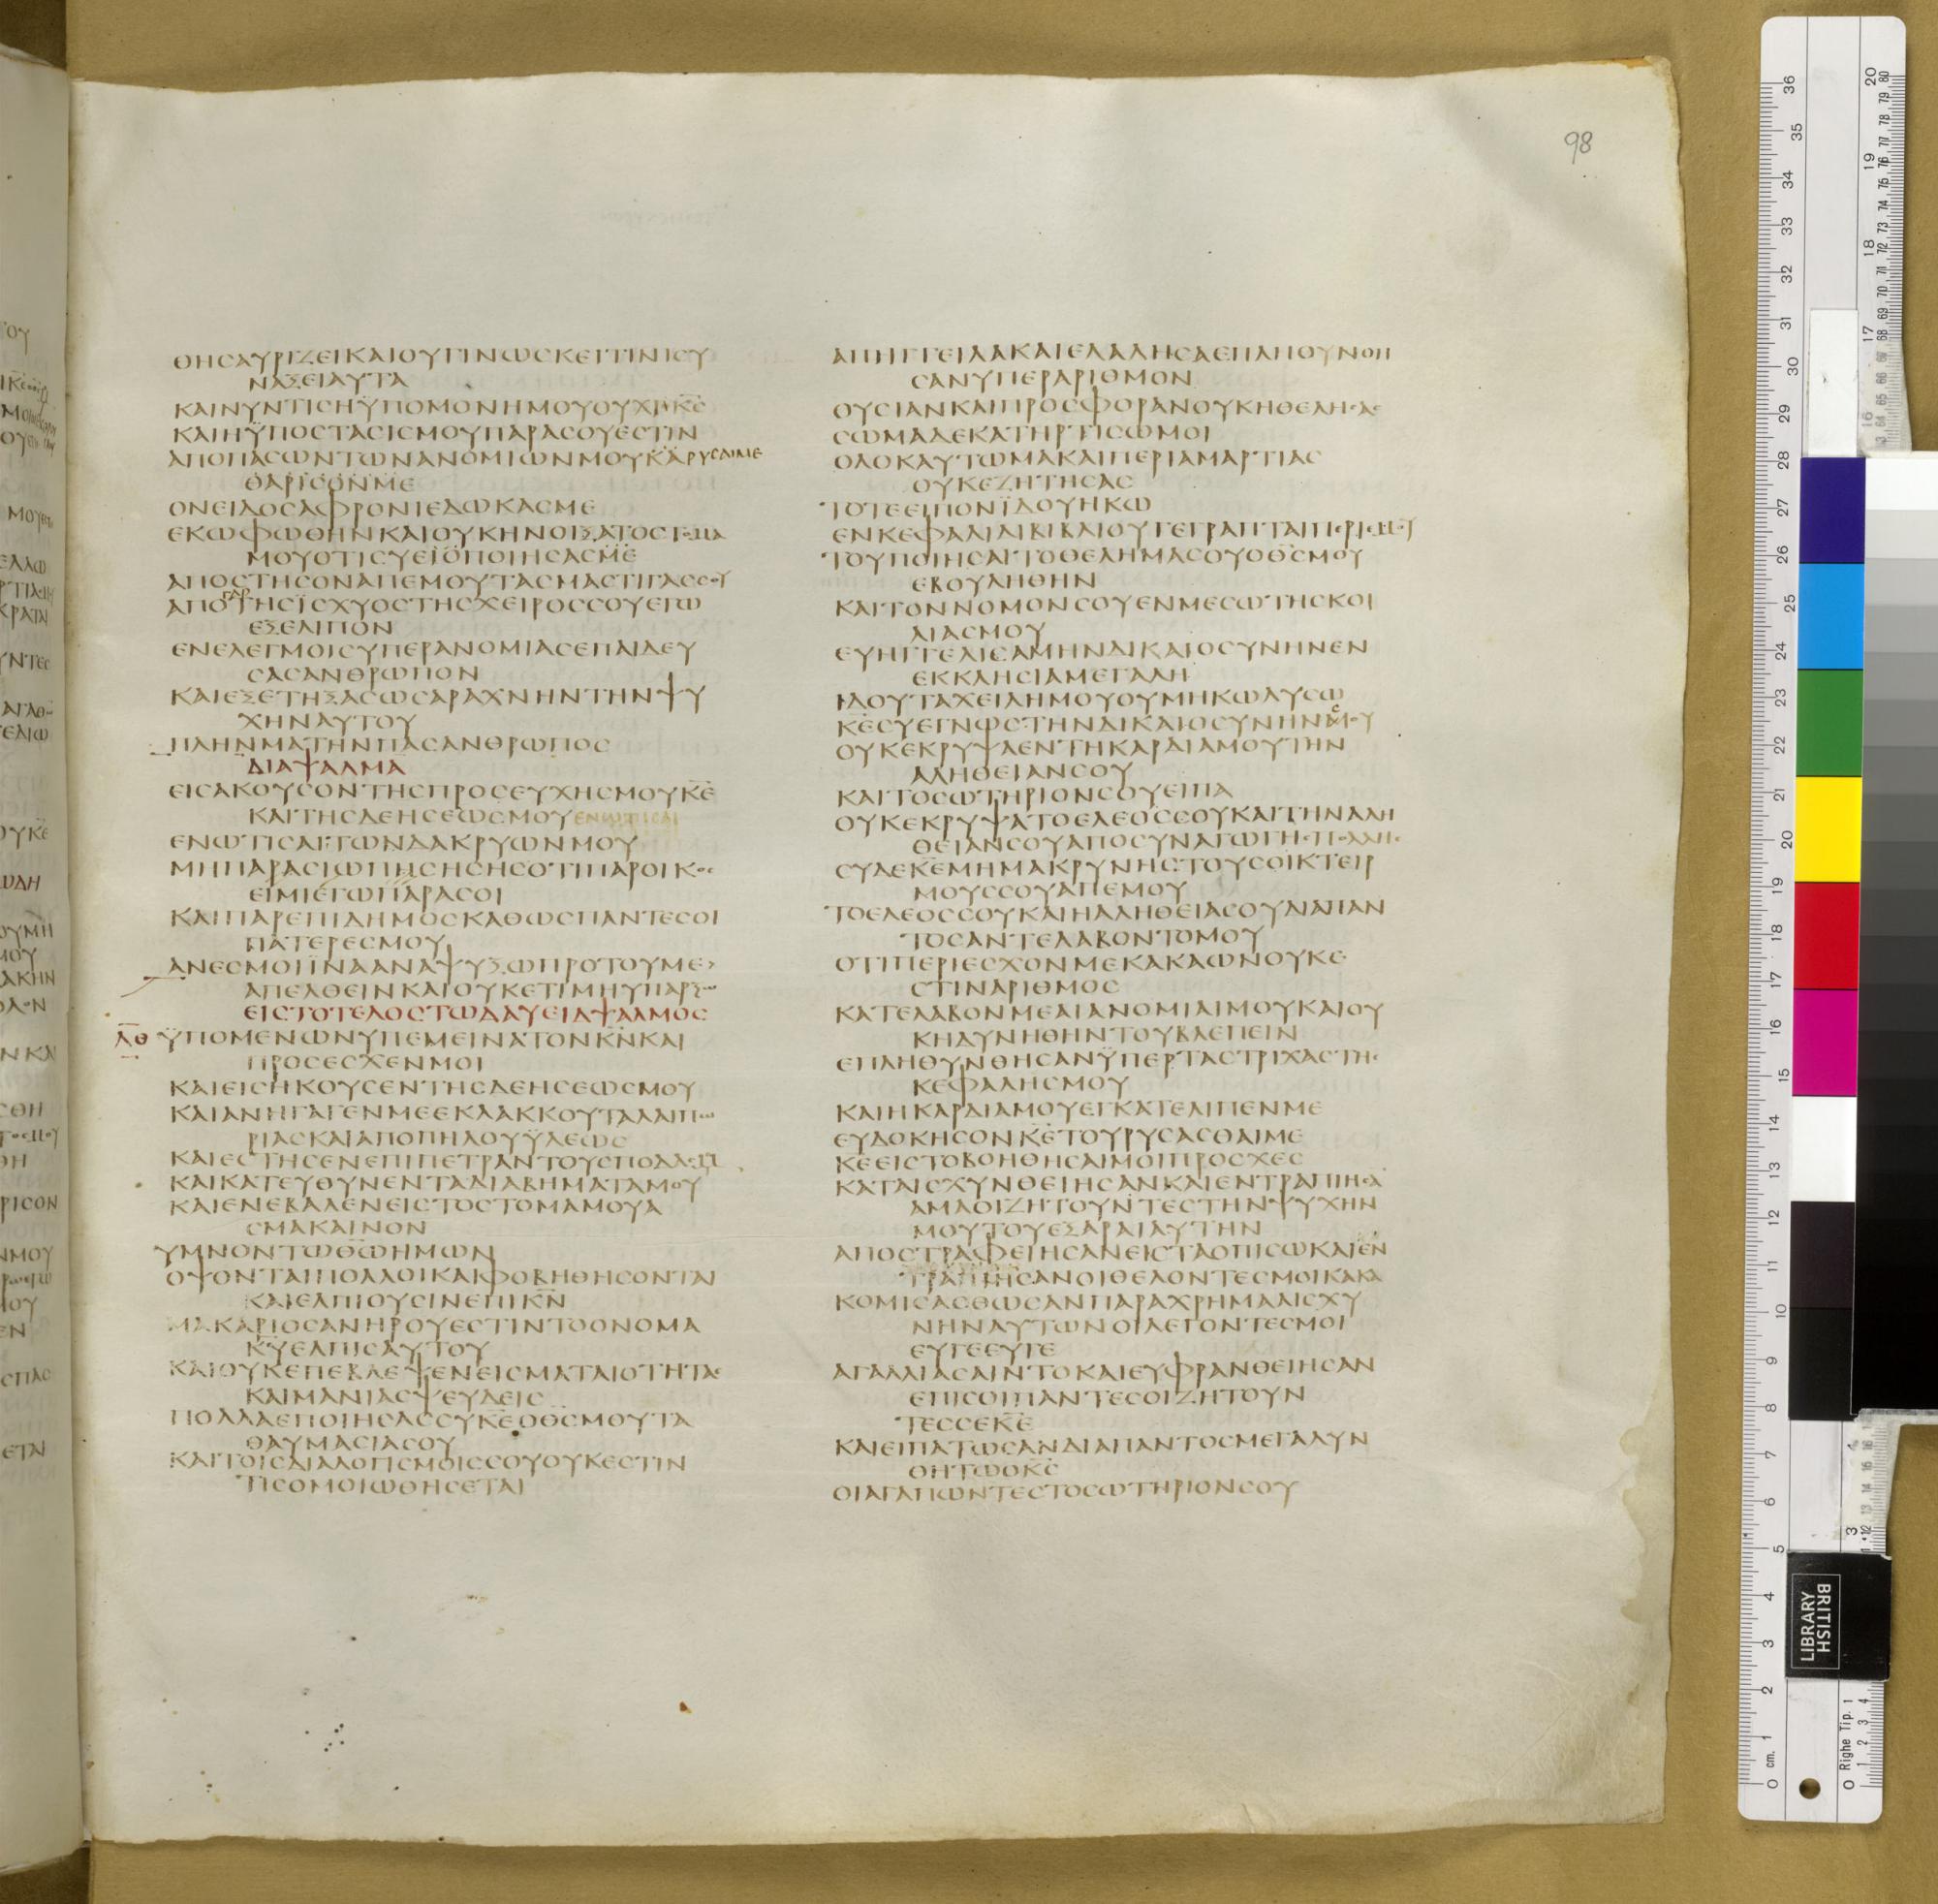 98
ΘΗCΑΥΡΙΖΕΙΚΑΙΟΥΓΙΝΩCΚΕΙΤΙΝΙCΥ
ΝΑΞΕΙΑΥΤΑ
ΚΑΙΝΥΝΤΙCΗΫΠΟΜΟΝΗΜΟΥΟΥΧΙΚC
ΚΑΙΗΫΠΟCΤΑCΙCΜΟΥΠΑΡΑCΟΥΕCΤΙΝ
ΑΠΟΠΑCΩΝΤΩΝΑΝΟΜΙΩΝΜΟΥΚΑΡΥCΑΙΜΕ
ΘΑΡΙCΟΝΜΕ
ΟΝΕΙΔΟCΑΦΡΟΝΙΕΔΩΚΑCΜΕ
ΕΚΩΦΩΘΗΝΚΑΙΟΥΚΗΝΟΙΞΑΤΟCΤΟΜΑ
ΜΟΥΟΤΙCΥΕΙΟΠΟΙΗCΑCΜΕ
ΑΠΟCΤΗCΟΝΑΠΕΜΟΥΤΑCΜΑCΤΙΓΑCCΟΥ
ΓΑΡ
ΑΠΟΤΗCΪCΧΥΟCΤΗCΧΕΙΡΟCCΟΥΕΓΩ
ΕΞΕΛΙΠΟΝ
ΕΝΕΛΕΓΜΟΙCΥΠΕΡΑΝΟΜΙΑCΕΠΑΙΔΕΥ
CΑCΑΝΘΡΩΠΟΝ
ΚΑΙΕΞΕΤΗΞΑCΩCΑΡΑΧΝΗΝΤΗΝΨΥ
ΧΗΝΑΥΤΟΥ
ΠΛΗΝΜΑΤΗΝΠΑCΑΝΘΡΩΠΟC
ΔΙΑΨΑΛΜΑ
ΕΙCΑΚΟΥCΟΝΤΗCΠΡΟCΕΥΧΗCΜΟΥΚΕ
ΚΑΙΤΗCΔΕΗCΕΩCΜΟΥΕΝΩΤΙCΑΙ
ΕΝΩΤΙCΑΙΤΩΝΔΑΚΡΥΩΝΜΟΥ
ΜΗΠΑΡΑCΙΩΠΗCΗCΗCΟΤΙΠΑΡΟΙΚΟC
ΕΙΜΙΕΓΩΠΑΡΑCΟΙ
ΚΑΙΠΑΡΕΠΙΔΗΜΟCΚΑΘΩCΠΑΝΤΕCΟΙ
ΠΑΤΕΡΕCΜΟΥ
ΑΝΕCΜΟΙΪΝΑΑΝΑΨΥΞΩΠΡΟΤΟΥΜΕ>
ΑΠΕΛΘΕΙΝΚΑΙΟΥΚΕΤΙΜΗΥΠΑΡΞΩ
ΕΙCΤΟΤΕΛΟCΤΩΔΑΥΕΙΔΨΑΛΜΟC
ΛΘ ΫΠΟΜΕΝΩΝΥΠΕΜΕΙΝΑΤΟΝΚΝΚΑΙ
ΠΡΟCΕCΧΕΝΜΟΙ
ΚΑΙΕΙCΗΚΟΥCΕΝΤΗCΔΕΗCΕΩCΜΟΥ
ΚΑΙΑΝΗΓΑΓΕΝΜΕΕΚΛΑΚΚΟΥΤΑΛΑΙΠΩ
ΡΙΑCΚΑΙΑΠΟΠΗΛΟΥΫΛΕΩC
ΚΑΙΕCΤΗCΕΝΕΠΙΠΕΤΡΑΝΤΟΥCΠΟΔΑCΜ
ΚΑΙΚΑΤΕΥΘΥΝΕΝΤΑΔΙΑΒΗΜΑΤΑΜΟΥ
ΚΑΙΕΝΕΒΑΛΕΝΕΙCΤΟCΤΟΜΑΜΟΥΑ
CΜΑΚΑΙΝΟΝ
ΥΜΝΟΝΤΩΘΩΗΜΩΝ
ΟΨΟΝΤΑΙΠΟΛΛΟΙΚΑΙΦΟΒΗΘΗCΟΝΤΑΙ
ΚΑΙΕΛΠΙΟΥCΙΝΕΠΙΚΝ
ΜΑΚΑΡΙΟCΑΝΗΡΟΥΕCΤΙΝΤΟΟΝΟΜΑ
ΚΥΕΛΠΙCΑΥΤΟΥ
ΚΑΙΟΥΚΕΠΕΒΛΕΨΕΝΕΙCΜΑΤΑΙΟΤΗΤΑC
ΚΑΙΜΑΝΙΑCΨΕΥΔΕΙC
ΠΟΛΛΑΕΠΟΙΗCΑCCΥΚΕΟΘCΜΟΥΤΑ
ΘΑΥΜΑCΙΑCΟΥ
ΚΑΙΤΟΙCΔΙΑΛΟΓΙCΜΟΙCCΟΥΟΥΚΕCΤΙΝ
ΤΙCΟΜΟΙΩΘΗCΕΤΑΙ
ΑΠΗΓΓΕΙΛΑΚΑΙΕΛΑΛΗCΑΕΠΛΗΘΥΝΘΗ
CΑΝΥΠΕΡΑΡΙΘΜΟΝ
ΟΥCΙΑΝΚΑΙΠΡΟCΦΟΡΑΝΟΥΚΗΘΕΛΗCΑC
CΩΜΑΔΕΚΑΤΗΡΤΙCΩΜΟΙ
ΟΛΟΚΑΥΤΩΜΑΚΑΙΠΕΡΙΑΜΑΡΤΙΑC
ΟΥΚΕΖΗΤΗCΑC
ΤΟΤΕΕΙΠΟΝΪΔΟΥΗΚΩ
ΕΝΚΕΦΑΛΙΔΙΒΙΒΛΙΟΥΓΕΓΡΑΠΤΑΙΠΕΡΙΕΜΟΥ
ΤΟΥΠΟΙΗCΑΙΤΟΘΕΛΗΜΑCΟΥΟΘCΜΟΥ
ΕΒΟΥΛΗΘΗΝ
ΚΑΙΤΟΝΝΟΜΟΝCΟΥΕΝΜΕCΩΤΗCΚΟΙ
ΛΙΑCΜΟΥ
ΕΥΗΓΓΕΛΙCΑΜΗΝΔΙΚΑΙΟCΥΝΗΝΕΝ
ΕΚΚΛΗCΙΑΜΕΓΑΛΗ
ΙΔΟΥΤΑΧΕΙΛΗΜΟΥΟΥΜΗΚΩΛΥCΩ
ΚΕCΥΕΓΝΩCΤΗΝΔΙΚΑΙΟCΥΝΗΝΜΟΥ
ΟΥΚΕΚΡΥΨΑΕΝΤΗΚΑΡΔΙΑΜΟΥΤΗΝ
ΑΛΗΘΕΙΑΝCΟΥ
ΚΑΙΤΟCΩΤΗΡΙΟΝCΟΥΕΙΠΑ
ΟΥΚΕΚΡΥΨΑΤΟΕΛΕΟCCΟΥΚΑΙΤΗΝΑΛΗ
ΘΕΙΑΝCΟΥΑΠΟCΥΝΑΓΩΓΗCΠΟΛΛΗC
CΥΔΕΚΕΜΗΜΑΚΡΥΝΗCΤΟΥCΟΙΚΤΕΙΡ
ΜΟΥCCΟΥΑΠΕΜΟΥ
ΤΟΕΛΕΟCCΟΥΚΑΙΗΑΛΗΘΕΙΑCΟΥΔΙΑΠΑΝ
ΤΟCΑΝΤΕΛΑΒΟΝΤΟΜΟΥ
ΟΤΙΠΕΡΙΕCΧΟΝΜΕΚΑΚΑΩΝΟΥΚΕ
CΤΙΝΑΡΙΘΜΟC
ΚΑΤΕΛΑΒΟΝΜΕΑΙΑΝΟΜΙΑΙΜΟΥΚΑΙΟΥ
ΚΗΔΥΝΗΘΗΝΤΟΥΒΛΕΠΕΙΝ
ΕΠΛΗΘΥΝΘΗCΑΝΫΠΕΡΤΑCΤΡΙΧΑCΤΗC
ΚΕΦΑΛΗCΜΟΥ
ΚΑΙΗΚΑΡΔΙΑΜΟΥΕΓΚΑΤΕΛΙΠΕΝΜΕ
ΕΥΔΟΚΗCΟΝΚΕΤΟΥΡΥCΑCΘΑΙΜΕ
ΚΕΕΙCΤΟΒΟΗΘΗCΑΙΜΟΙΠΡΟCΧΕC
ΚΑΤΑΙCΧΥΝΘΕΙΗCΑΝΚΑΙΕΝΤΡΑΠΙΗCΑ
ΑΜΑΟΙΖΗΤΟΥΝΤΕCΤΗΝΨΥΧΗΝ
ΜΟΥΤΟΥΕΞΑΡΑΙΑΥΤΗΝ
ΑΠΟCΤΡΑΦΕΙΗCΑΝΕΙCΤΑΟΠΙCΩΚΑΙΕΝ
ΤΡΑΠΙΗCΑΝΟΙΘΕΛΟΝΤΕCΜΟΙΚΑΚΑ
ΚΟΜΙCΑCΘΩCΑΝΠΑΡΑΧΡΗΜΑΑΙCΧΥ
ΝΗΝΑΥΤΩΝΟΙΛΕΓΟΝΤΕCΜΟΙ
ΕΥΓΕΕΥΓΕ
ΑΓΑΛΛΙΑCΑΙΝΤΟΚΑΙΕΥΦΡΑΝΘΕΙΗCΑΝ
ΕΠΙCΟΙΠΑΝΤΕCΟΙΖΗΤΟΥΝ
ΤΕCCΕΚΕ
ΚΑΙΕΙΠΑΤΩCΑΝΔΙΑΠΑΝΤΟCΜΕΓΑΛΥΝ
ΘΗΤΩΟΚC
ΟΙΑΓΑΠΩΝΤΕCΤΟCΩΤΗΡΙΟΝCΟΥ
BRITISH
LIBRARY